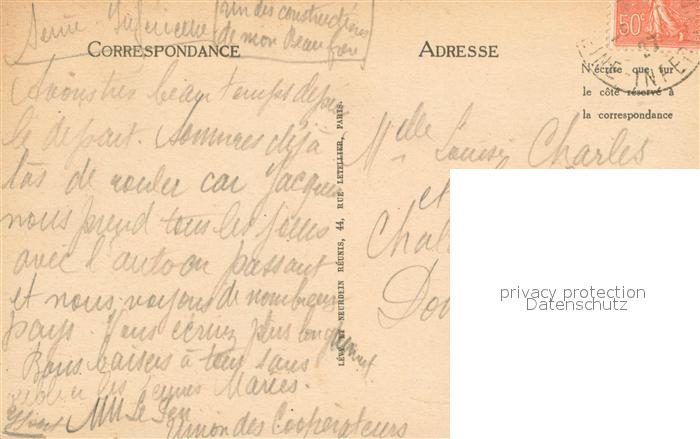 Seine Inférieure
Un des constructions
de mon Beau frère
CORRESPONDANCE
Avons très beau temps depuis
le départ. Sommes déjà
las de rouler car Jacques
nous prend tous les jours
avec l'auto en passant
et nous voyons de nombreux
pays. Vous écrirez plus longuement
Bons baisers à tous sans
les jeunes Maries.
Union des Coopérateurs
LÉVY ET NEURDEIN RÉUNIS, 44, RUE LETELLIER, PARIS.
ADRESSE
50c
27
INFER
N'écrire que sur
le côté réservé à
la correspondance
Melle Louise Charles
et
privacy protection
Datenschutz